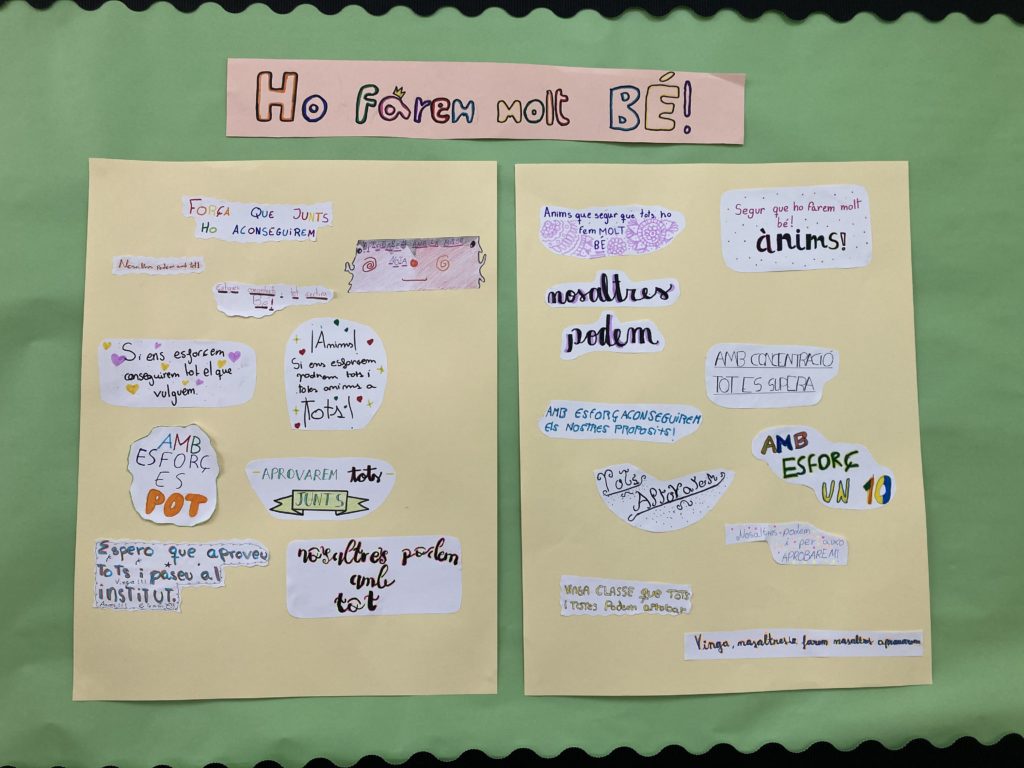 Ho farem molt BÉ!
FORÇA QUE JUNTS
HO ACONSEGUIREM
Nosaltres podem amb tot!
Bé!
Si ens esforcem
conseguirem tot el que
vulguem.
¡Ànims!
Si ens esforsem
podrem tots i
totes anims a
Tots!
AMB
ESFORÇ
ES
POT
-APROVAREM tots-
JUNTS
Espero que aproveu
TOTS i paseu al
Vinga !!!
INSTITUT.
nosaltres podem
amb
tot
Anims que segur que tots ho
fem MOLT
BÉ
Segur que ho farem molt
bé!
ànims!
nosaltres
podem
AMB CONCENTRACIÓ
TOT ES SUPERA
AMB ESFORÇ ACONSEGUIREM
ELS NOSTRES PROPOSITS!
Tots
Aprovarem
AMB
ESFORÇ
UN 10
Nosaltres podem
i per aixo
APROBAREM!
VINGA CLASSE QUE TOTS
i TOTES Podem aprobar
Vinga, farem